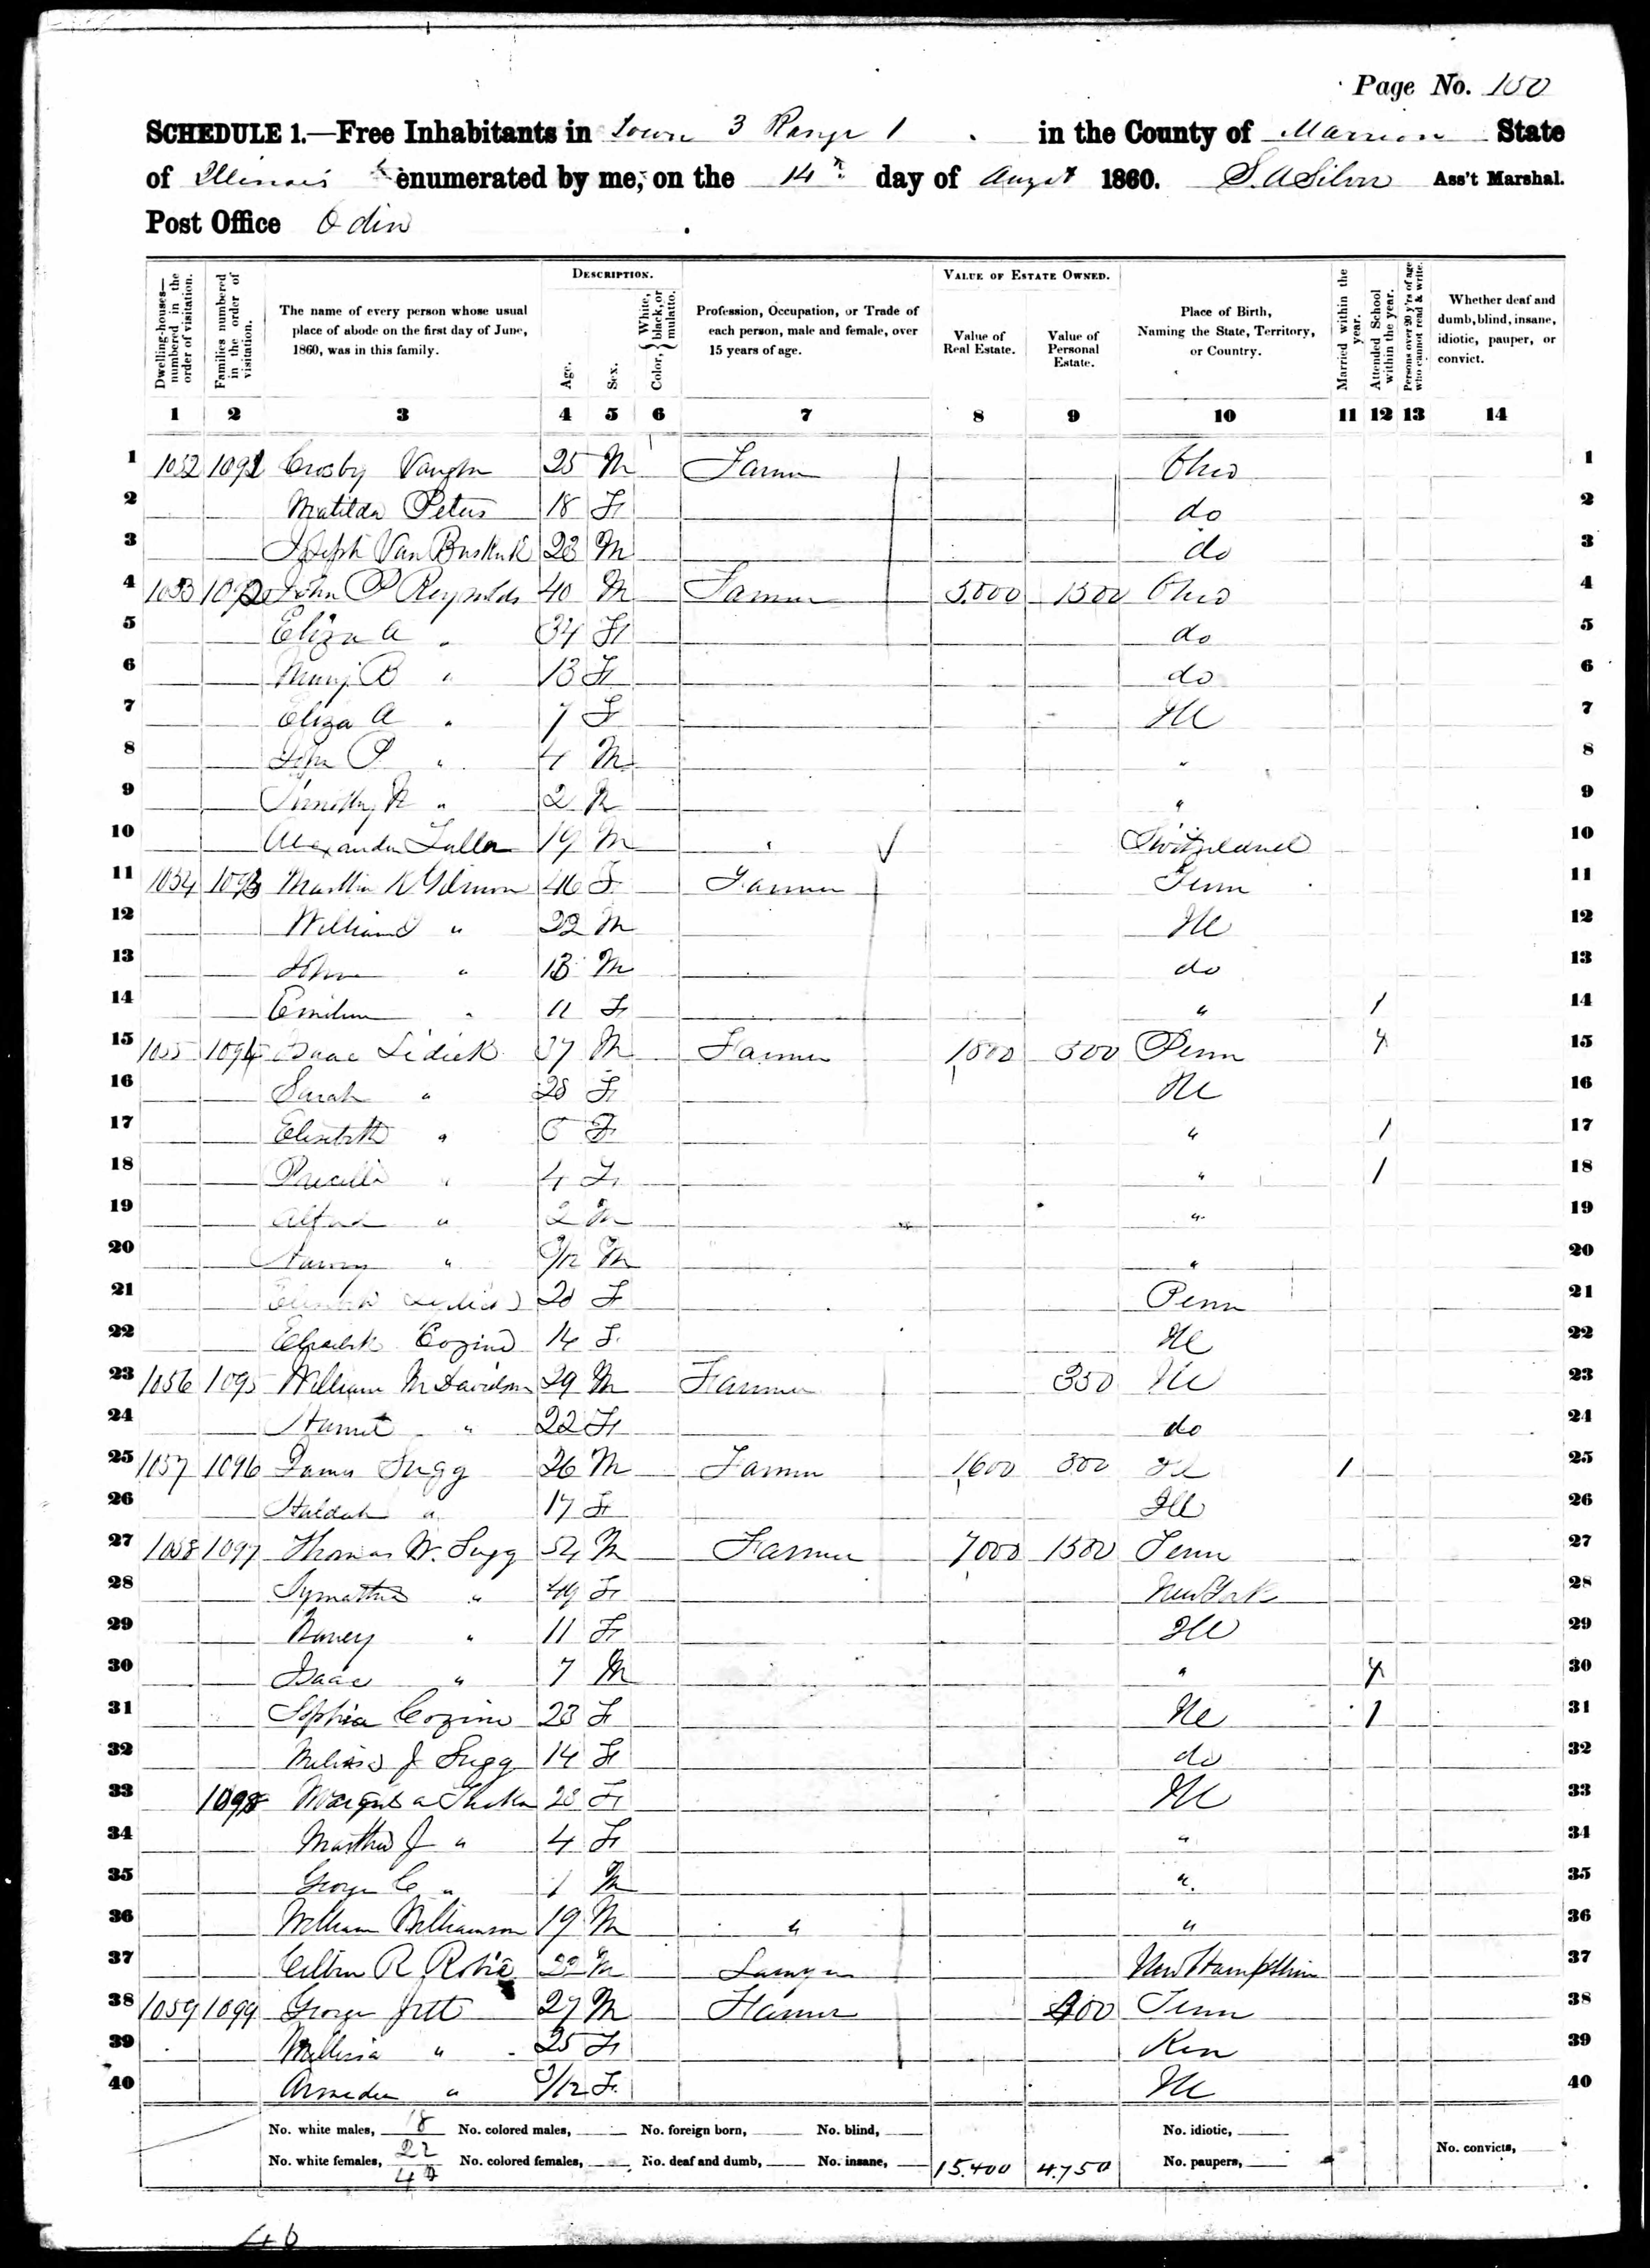 Page No. 150
SCHEDULE 1.—Free Inhabitants in Town 3 Range 1 in the County of Marrion State
of Illinois enumerated by me, on the 14th day of Augst 1860. S. A Silver Ass't Marshal.
Post Office Odin
Dwelling-houses—numbered in the order of visitation.
Families numbered in the order of visitation.
The name of every person whose usual place of abode on the first day of June, 1860, was in this family.
DESCRIPTION.
Age.
Sex.
Color, { White, black, or mulatto.
Profession, Occupation, or Trade of each person, male and female, over 15 years of age.
VALUE OF ESTATE OWNED.
Value of Real Estate.
Value of Personal Estate.
Place of Birth, Naming the State, Territory, or Country.
Married within the year.
Attended School within the year.
Persons over 20 y'rs of age who cannot read & write.
Whether deaf and dumb, blind, insane, idiotic, pauper, or convict.
1 2 3 4 5 6 7 8 9 10 11 12 13 14
1 1052 1091 Crosby Vaughn 25 M Farmer Ohio 1
2 Matilda Peters 18 F do 2
3 Joseph Van Buskirk 23 M do 3
4 1053 1092 John P Reynolds 40 M Farmer 5.000 1500 Ohio 4
5 Eliza A " 34 F do 5
6 Mary B " 13 F do 6
7 Eliza A " 7 F Ill 7
8 John P " 4 M " 8
9 Timothy " 2 M " 9
10 Alexander 19 M " Switzerland 10
11 1054 1093 46 F Farmer Tenn 11
12 William " 22 M Ill 12
13 John " 13 M do 13
14 " 11 F " 1 14
15 1055 1094 Isaac Lidick 37 M Farmer 1800 500 Penn 15
16 Sarah " 28 F Ill 16
17 " F " 1 17
18 " 4 F " 1 18
19 " 2 M " 19
20 " M " 20
21 F Penn 21
22 Cozine 14 F Ill 22
23 1056 1095 William M Davidson 29 M Farmer 350 Ill 23
24 " 22 F do 24
25 1057 1096 James Sugg 26 M Farmer 1600 300 Ill 1 25
26 Huldah " 17 F Ill 26
27 1058 1097 Thomas W. Sugg 54 M Farmer 7000 1500 Tenn 27
28 " 49 F New York 28
29 Nancy " 11 F Ill 29
30 Isaac " 7 M " 30
31 Sophia Cozine 23 F Ill 1 31
32 J Sugg 14 F do 32
33 1098 23 F Ill 33
34 Martha J " 4 F " 34
35 George C " 1 M " 35
36 William Williamson 19 M " " 36
37 R Robie 22 M Lawyer New Hampshire 37
38 1059 1099 George Jett 27 M Farmer 400 Tenn 38
39 " 25 F Ken 39
40 " F Ill 40
No. white males, 18 No. colored males, No. foreign born, No. blind, No. idiotic,
No. white females, 22 No. colored females, No. deaf and dumb, No. insane, 15.400 4.750 No. paupers, No. convicts,
40